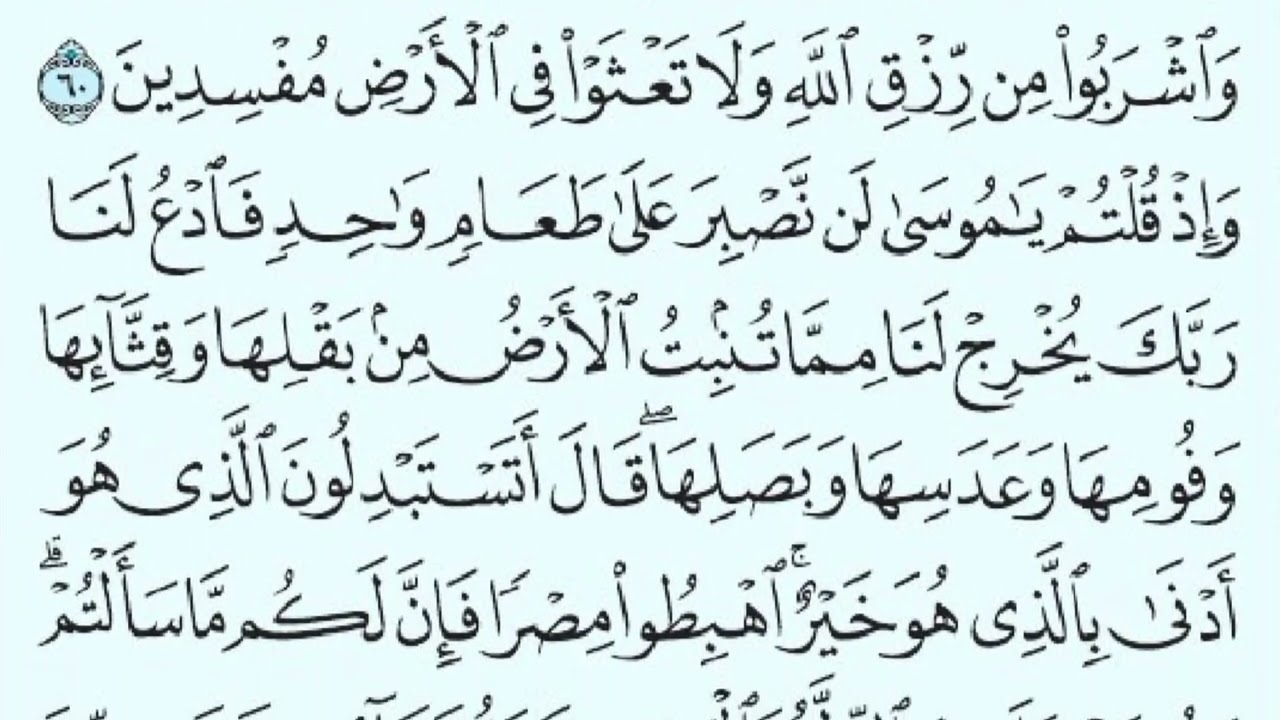 وَٱشۡرَبُواْ مِن رِّزۡقِ ٱللَّهِ وَلَا تَعۡثَوۡاْ فِي ٱلۡأَرۡضِ مُفۡسِدِينَ ٦٠
وَإِذۡ قُلۡتُمۡ يَٰمُوسَىٰ لَن نَّصۡبِرَ عَلَىٰ طَعَامٖ وَٰحِدٖ فَٱدۡعُ لَنَا
رَبَّكَ يُخۡرِجۡ لَنَا مِمَّا تُنۢبِتُ ٱلۡأَرۡضُ مِنۢ بَقۡلِهَا وَقِثَّآئِهَا
وَفُومِهَا وَعَدَسِهَا وَبَصَلِهَاۖ قَالَ أَتَسۡتَبۡدِلُونَ ٱلَّذِي هُوَ
أَدۡنَىٰ بِٱلَّذِي هُوَ خَيۡرٌۚ ٱهۡبِطُواْ مِصۡرٗا فَإِنَّ لَكُم مَّا سَأَلۡتُمۡۗ